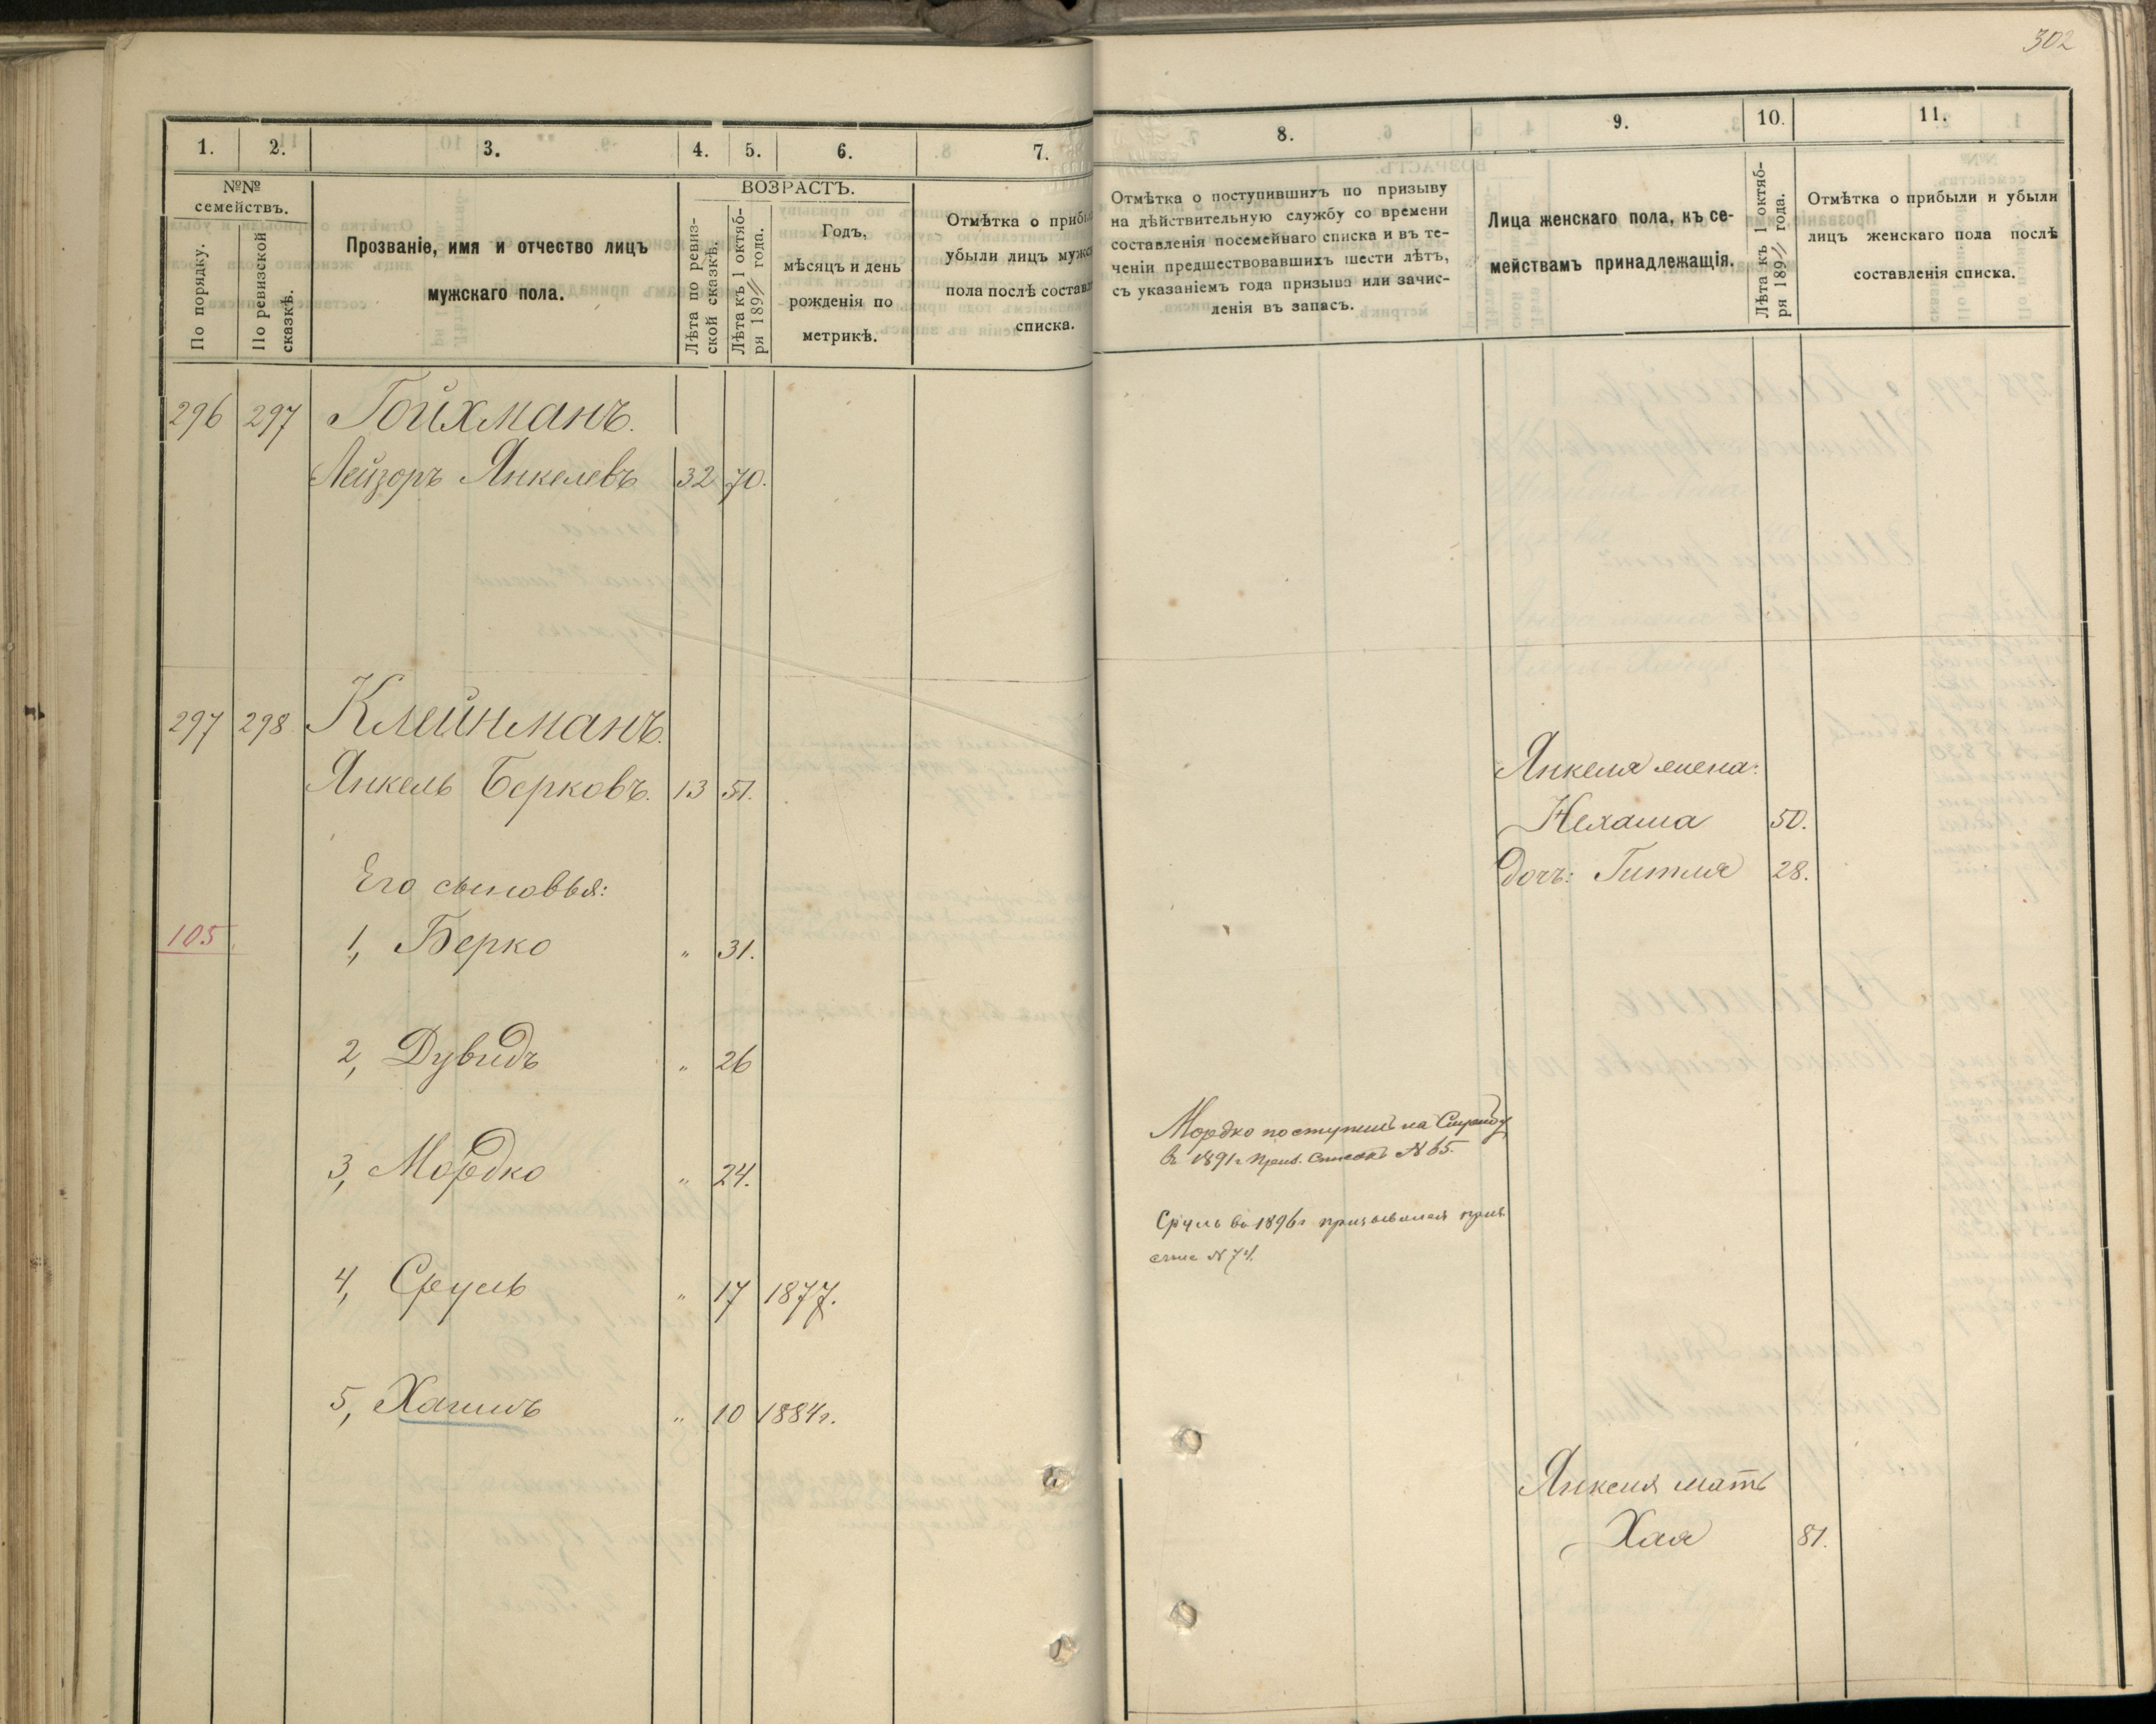 302
1. 2. 3. 4. 5. 6. 7.
№№ семействъ.
По порядку.
По ревизской сказкѣ.
Прозваніе, имя и отчество лицъ
мужскаго пола.
ВОЗРАСТЪ.
Лѣта по ревиз-
ской сказкѣ.
Лѣта къ 1 октяб-
ря 189 года.
Годъ,
мѣсяцъ и день
рожденія по
метрикѣ.
Отмѣтка о прибы
убыли лицъ мужс
пола послѣ составл
списка.
296 297 Гойхманъ.
Лейзоръ Янкелевъ 32 70.
297 298 Клейнманъ.
Янкель Берковъ. 13 51.
Его сыновья:
105 1, Берко " 31.
2, Дувидъ " 26
3, Мордко " 24.
4, Сруль " 17 1877.
5, Хаимъ " 10 1884г.
8. 9. 10. 11.
Отмѣтка о поступившихъ по призыву
на дѣйствительную службу со времени
составленія посемейнаго списка и въ те-
ченіи предшествовавшихъ шести лѣтъ,
съ указаніемъ года призыва или зачис-
ленія въ запасъ.
Лица женскаго пола, къ се-
мействамъ принадлежащія.
Лѣта къ 1 октяб-
ря 189 года.
Отмѣтка о прибыли и убыли
лицъ женскаго пола послѣ
составленія списка.
Янкеля жена:
Нехама 50.
дочь: Гитля 28.
Мордко поступилъ на Службу
въ 1891г Приз. Списокъ №
Сруль въ 1896г призывался приз
№ 74.
Янкеля мать
Хая 81.